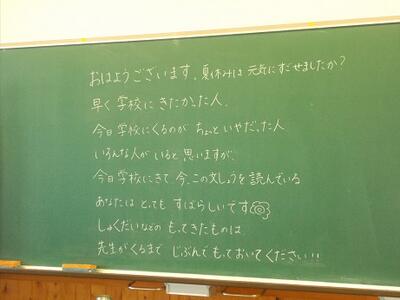 おはようございます。夏休みは 元気にすごせましたか?
早く学校にきたかった人、
今日学校にくるのが ちょっといやだった人
いろんな人がいると思いますが、
今日学校にきて、今、この文しょうを読んでいる
あなたは とっても すばらしいです
しゅくだいなどの もってきたものは
先生がくるまで じぶんで もっておいてください!!